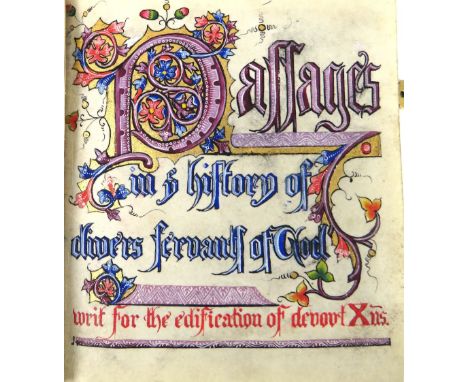 Paſſages
in hiſtory of
divers ſervants of God
writ for the edification of devovt Xns.